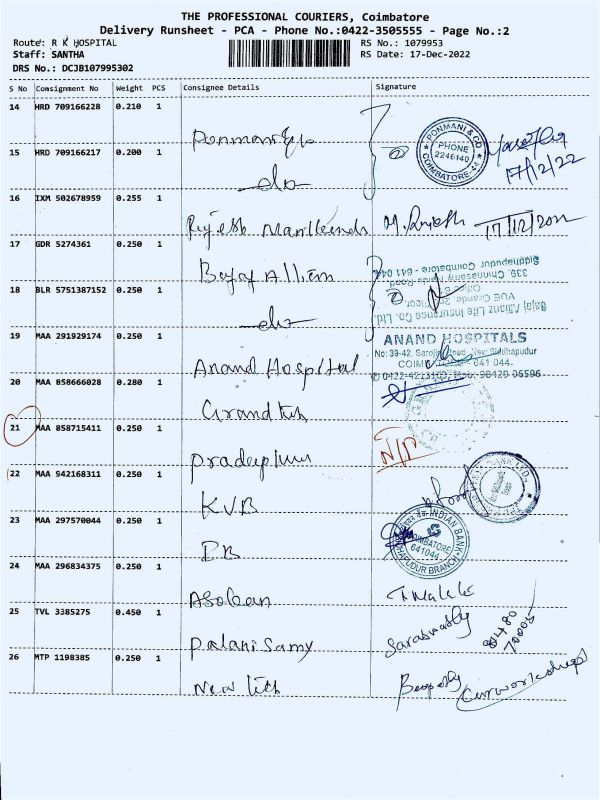 THE PROFESSIONAL COURIERS, Coimbatore
Delivery Runsheet - PCA - Phone No.:0422-3505555 - Page No.:2
Route: R K HOSPITAL RS No.: 1079953
Staff: SANTHA RS Date: 17-Dec-2022
DRS No.: DCJB107995302
S No Consignment No Weight PCS Consignee Details Signature
14 HRD 709166228 0.210 1
PONMANI & CO PHONE 2246140 COIMBATORE-44
17/12/22
15 HRD 709166217 0.200 1
do
16 IXM 502678959 0.255 1
Rajesh M. Rajesh 17/12/2022
17 GDR 5274361 0.250 1
Bajaj Allianz
Bajaj Allianz Life Insurance Co. Ltd.
VUE Grande, Floor,
339, Chinnasamy Naidu Road
Siddhapudur Coimbatore - 641 044
18 BLR 5751387152 0.250 1
do
19 MAA 291929174 0.250 1
Anand Hospital
ANAND HOSPITALS
No: 39-42, Sarojini New Siddhapudur
COIM 641 044.
0422-4213163, Mob: 98420 06596
20 MAA 858666028 0.280 1
Grand
21 MAA 858715411 0.250 1
Pradeep N/P
22 MAA 942168311 0.250 1
KVB BANK LTD.
23 MAA 297570044 0.250 1
IB
INDIAN BANK COIMBATORE 641044 SIDHAPUDUR BRANCH
24 MAA 296834375 0.250 1
Asokan
25 TVL 3385275 0.450 1
Palanisamy
26 MTP 1198385 0.250 1
New